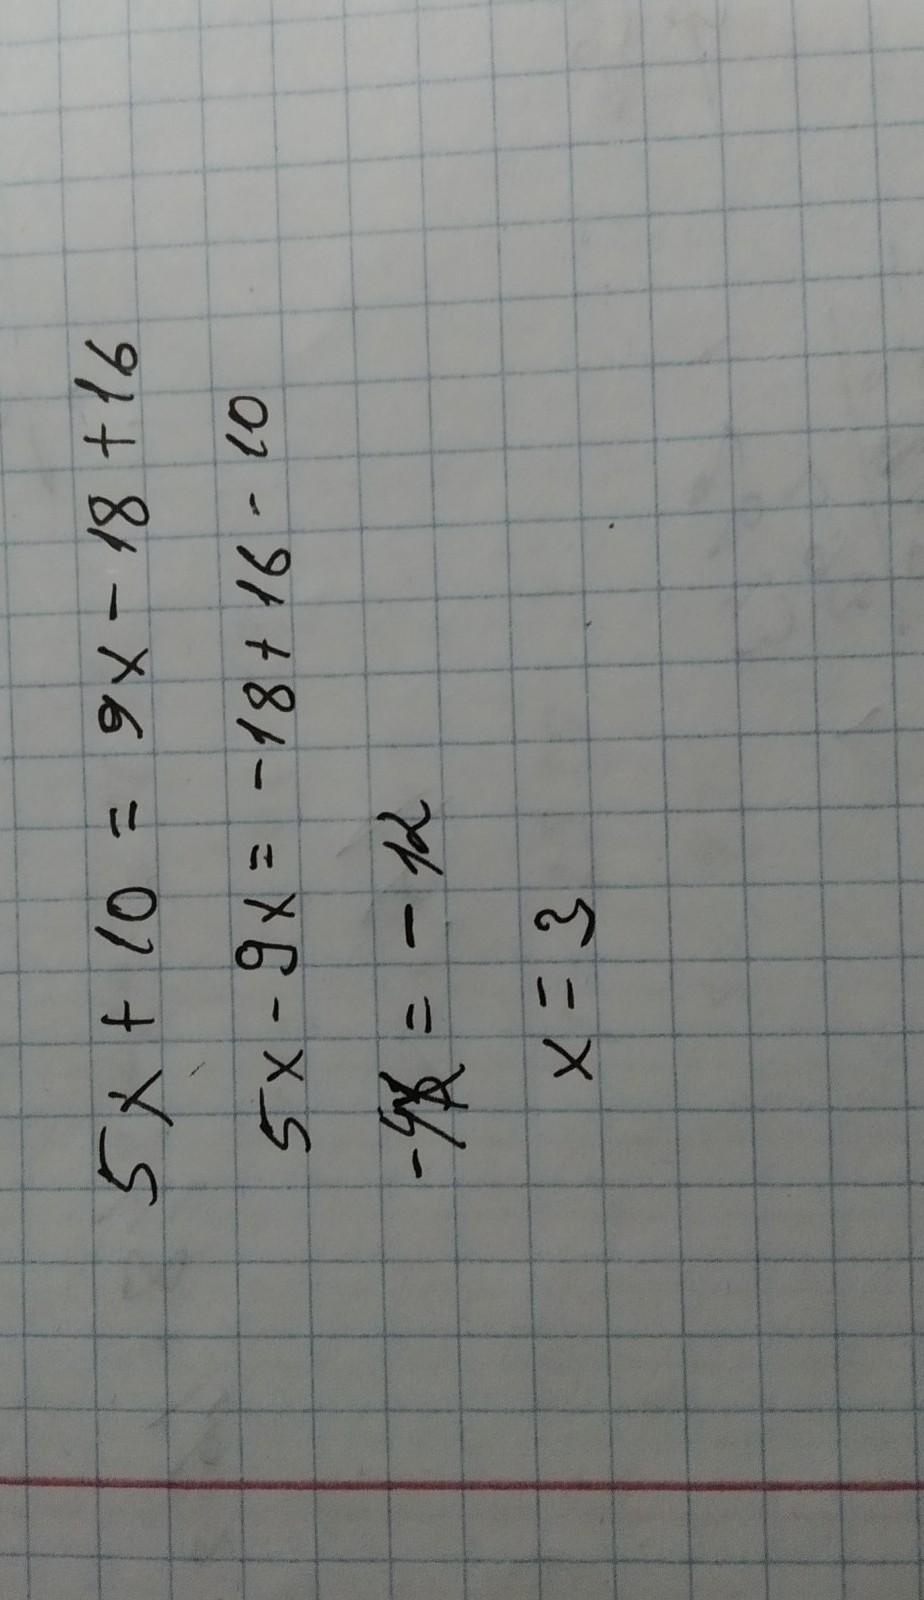 5x + 10 = 9x - 18 + 16
5x - 9x = -18 + 16 - 10
-4x = -12
x = 3